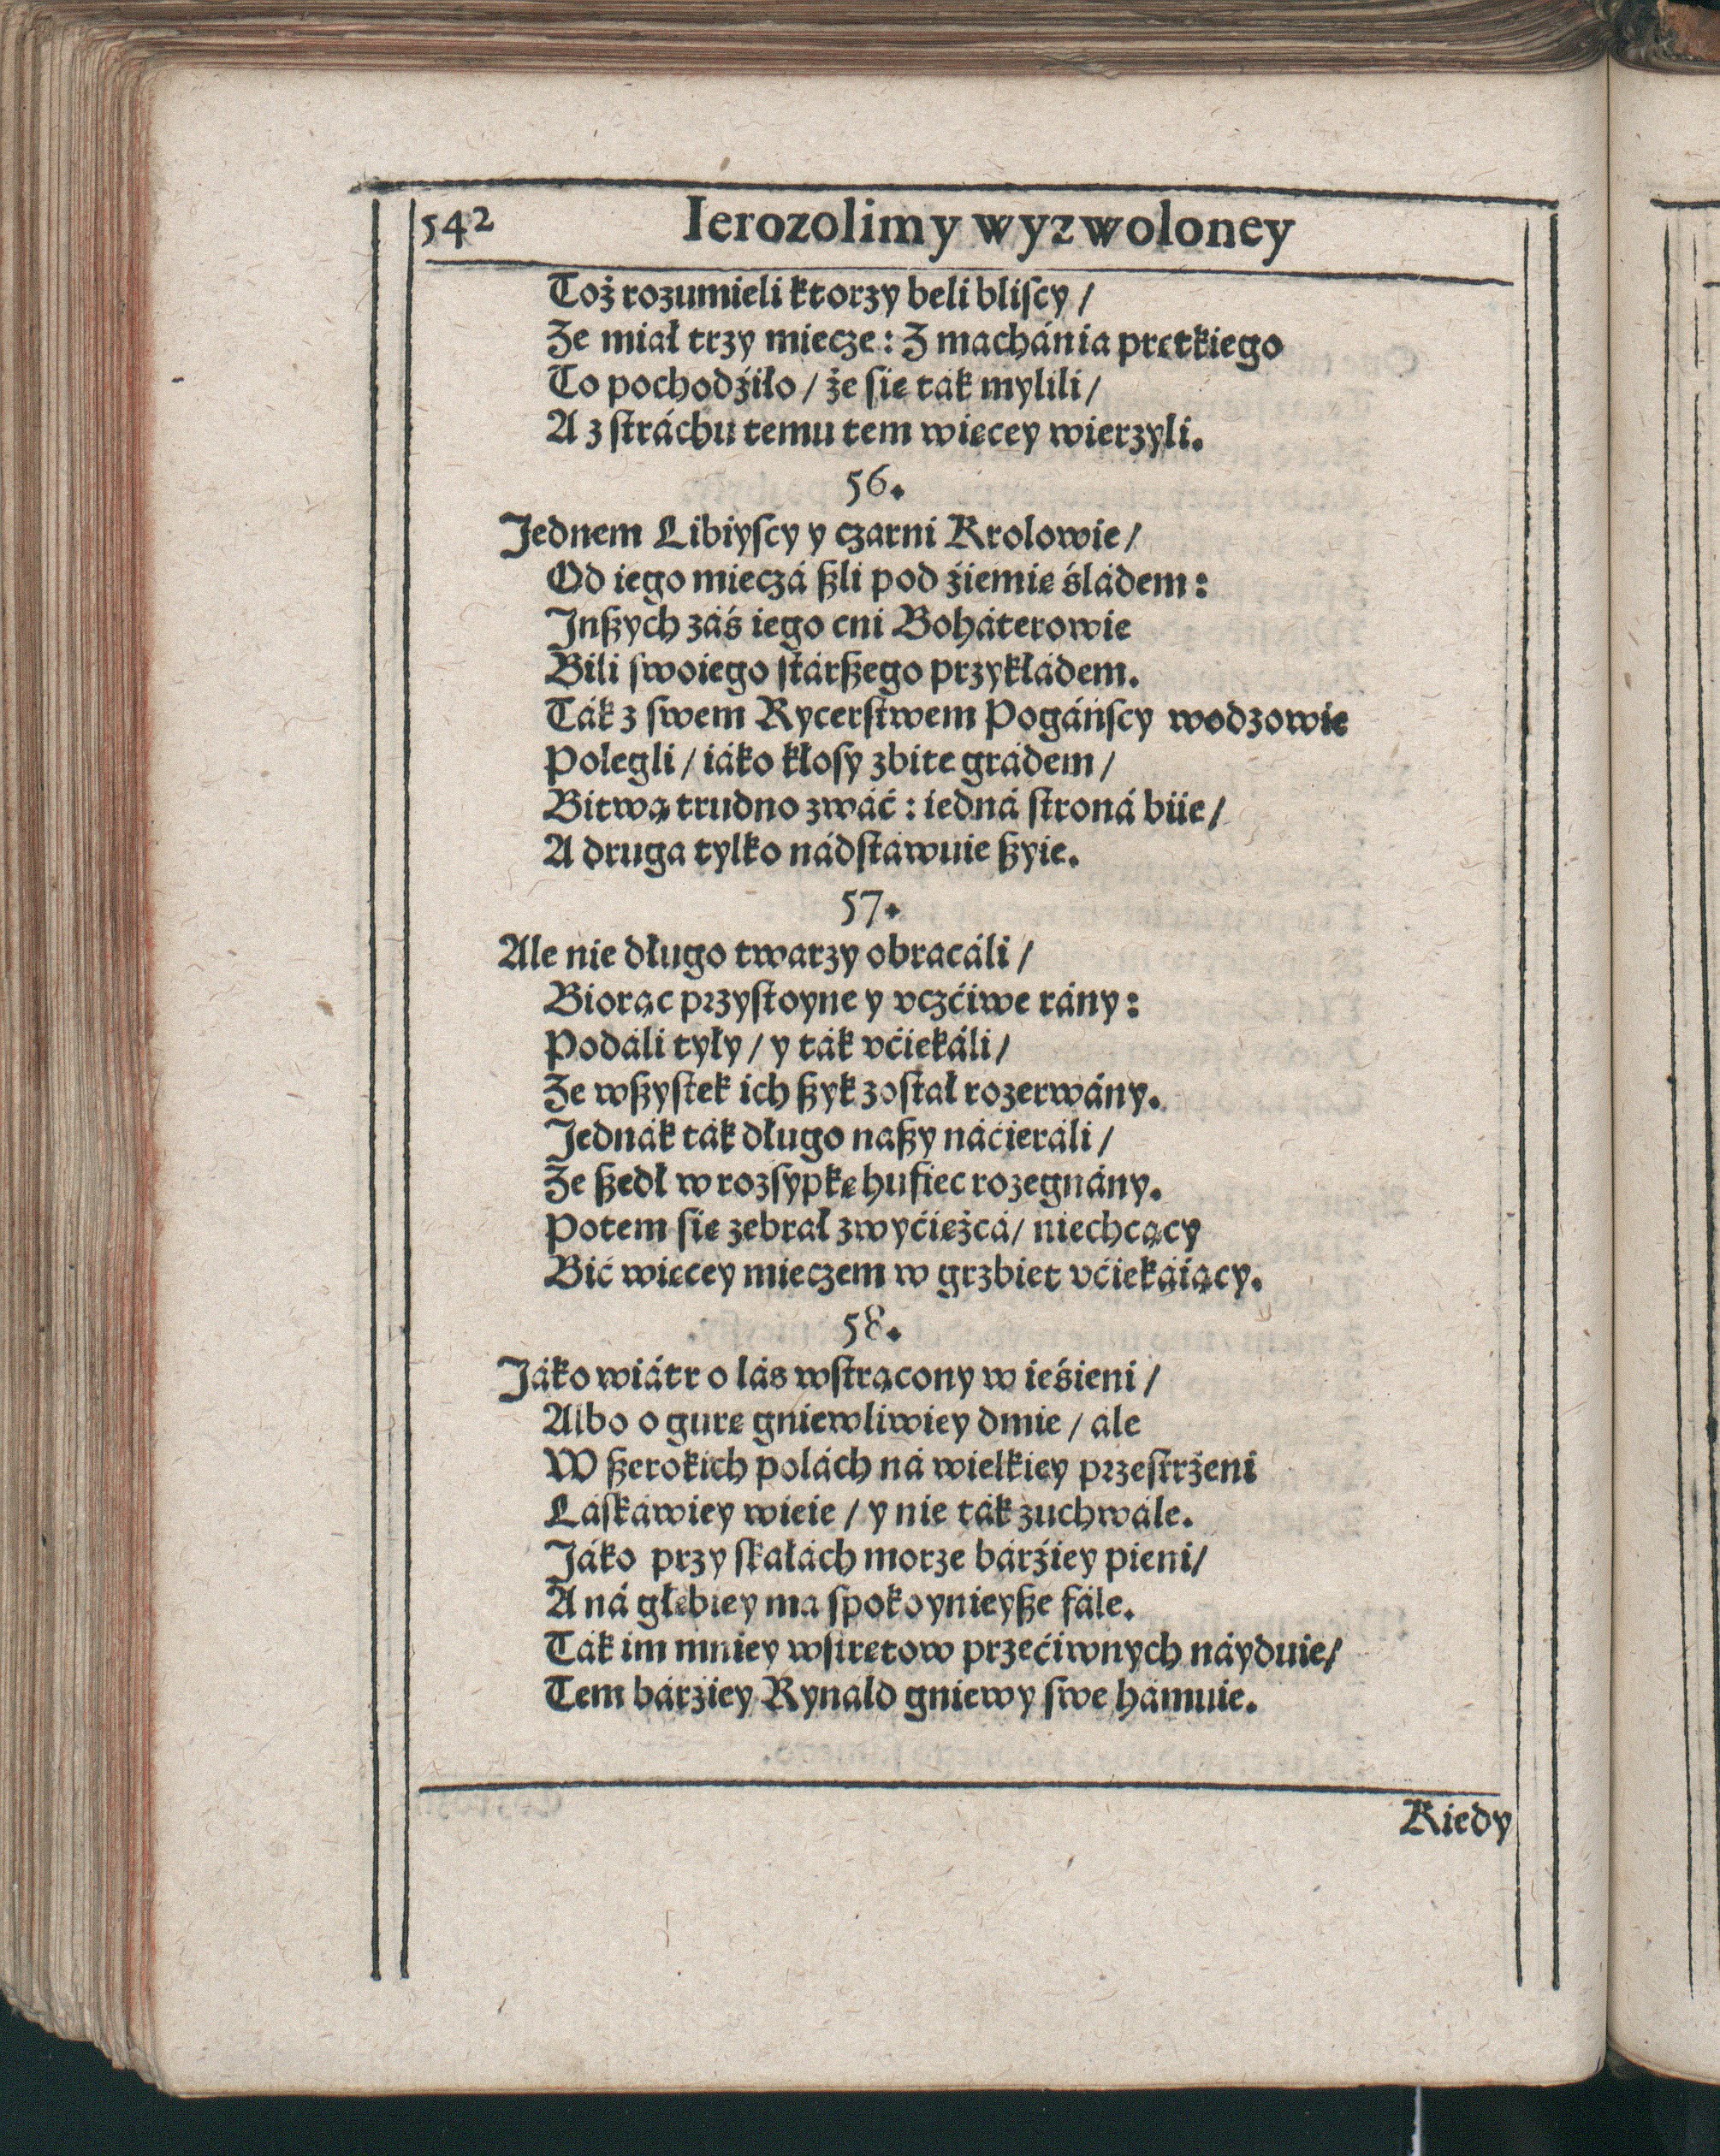 542 Ierozolimy wyzwoloney
Toż rozumieli ktorzy beli bliſcy /
Ze miał trzy miecze: Z machánia prętkiego
To pochodźiło / że ſię ták mylili /
A z ſtráchu temu tem więcey wierzyli.
56.
Jednem Libiyſcy y czarni Krolowie /
Od iego mieczá ſzli pod źiemię śládem:
Jnſzych záś iego cni Boháterowie
Bili ſwoiego ſtárſzego przykłádem.
Ták z ſwem Rycerſtwem Pogáńſcy wodzowie
Polegli / iáko kłoſy zbite grádem /
Bitwą trudno zwáć: iedná ſtroná biie /
A druga tylko nádſtáwuie ſzyie.
57.
Ale nie długo twarzy obracáli /
Biorąc przyſtoyne y vczćiwe rány:
Podáli tyły / y ták vćiekáli /
Ze wſzyſtek ich ſzyk zoſtał rozerwány.
Jednák ták długo naſzy náćieráli /
Ze ſzedł w rozſypkę hufiec rozegnány.
Potem ſię zebrał zwyćiężcá / niechcący
Bić więcey mieczem w grzbiet vćiekáiący.
58.
Jáko wiátr o lás wſtrącony w ieśieni /
Albo o gurę gniewliwiey dmie / ále
W ſzerokich polách ná wielkiey przeſtrżeni
Láſkáwiey wieie / y nie ták zuchwále.
Jáko przy ſkałách morze bárźiey pieni /
A ná głębiey ma ſpokoynieyſze fále.
Ták im mniey wſtrętow przećiwnych náyduie /
Tem bárźiey Rynald gniewy ſwe hámuie.
Kiedy